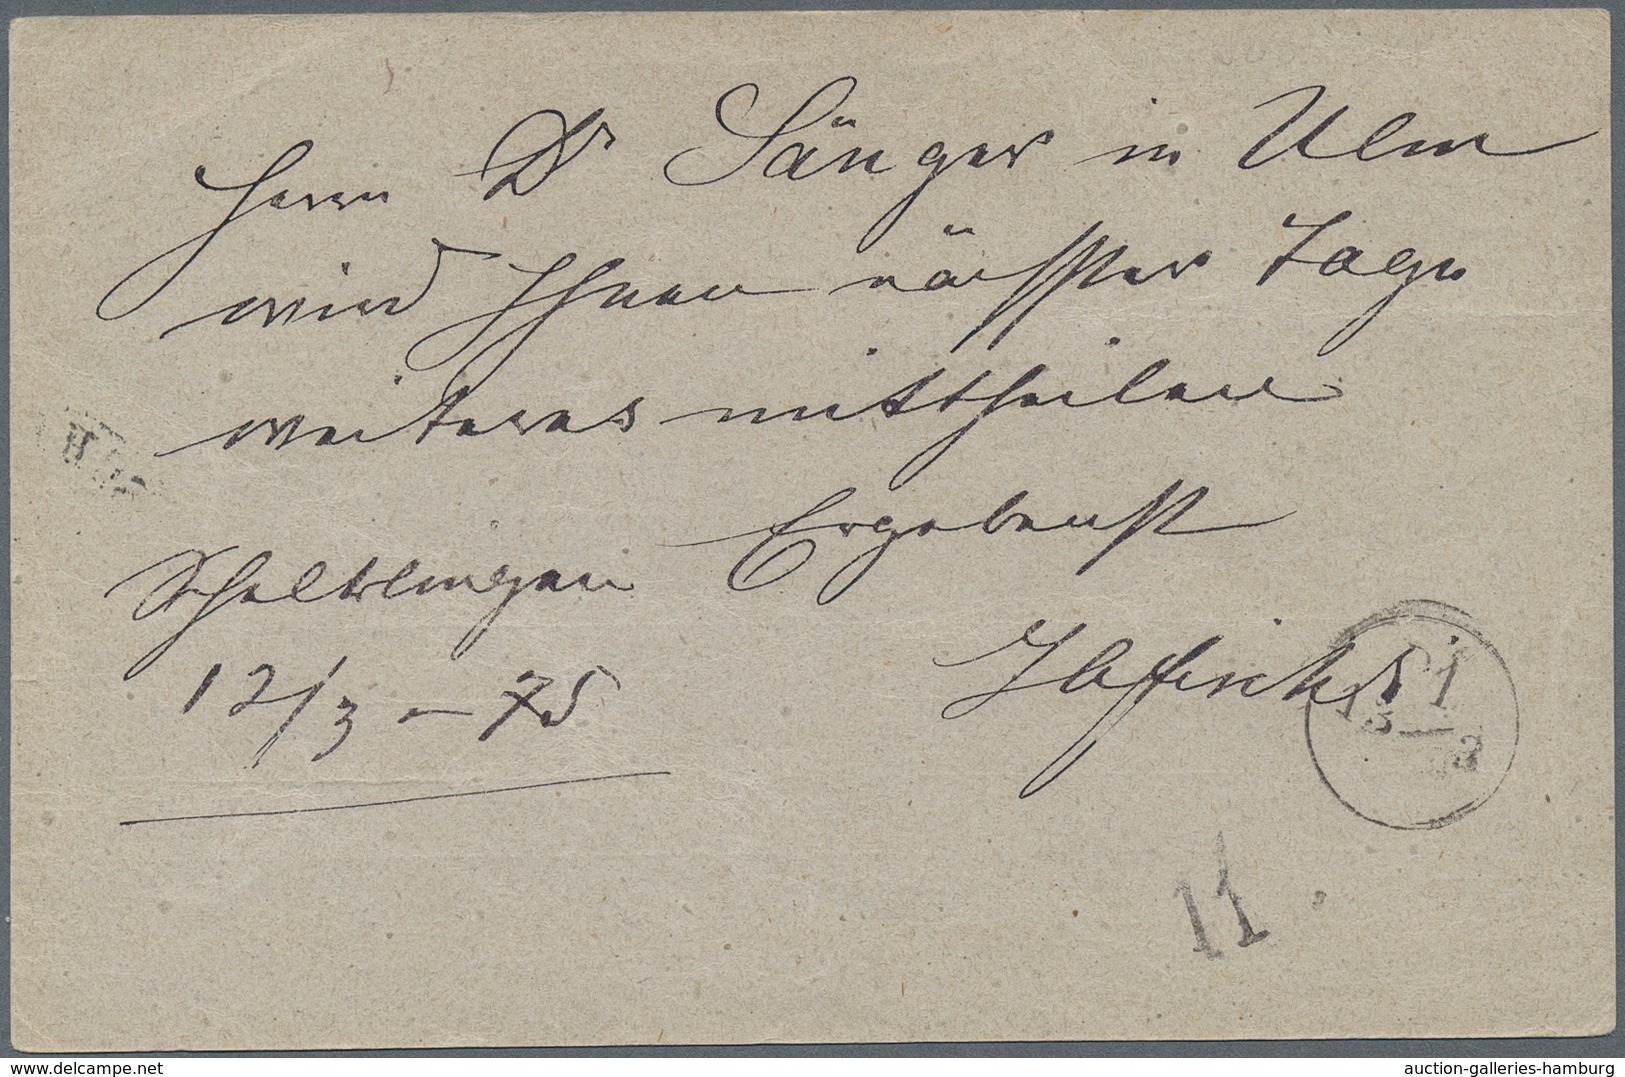 Herrn Dr Sänger in Ulm
wird Ihnen nächster Tage
weiteres mittheilen
Ergebenst
Schelklingen
12/3 – 75
13 3
11
delcampe.net
auction-galleries-hamburg